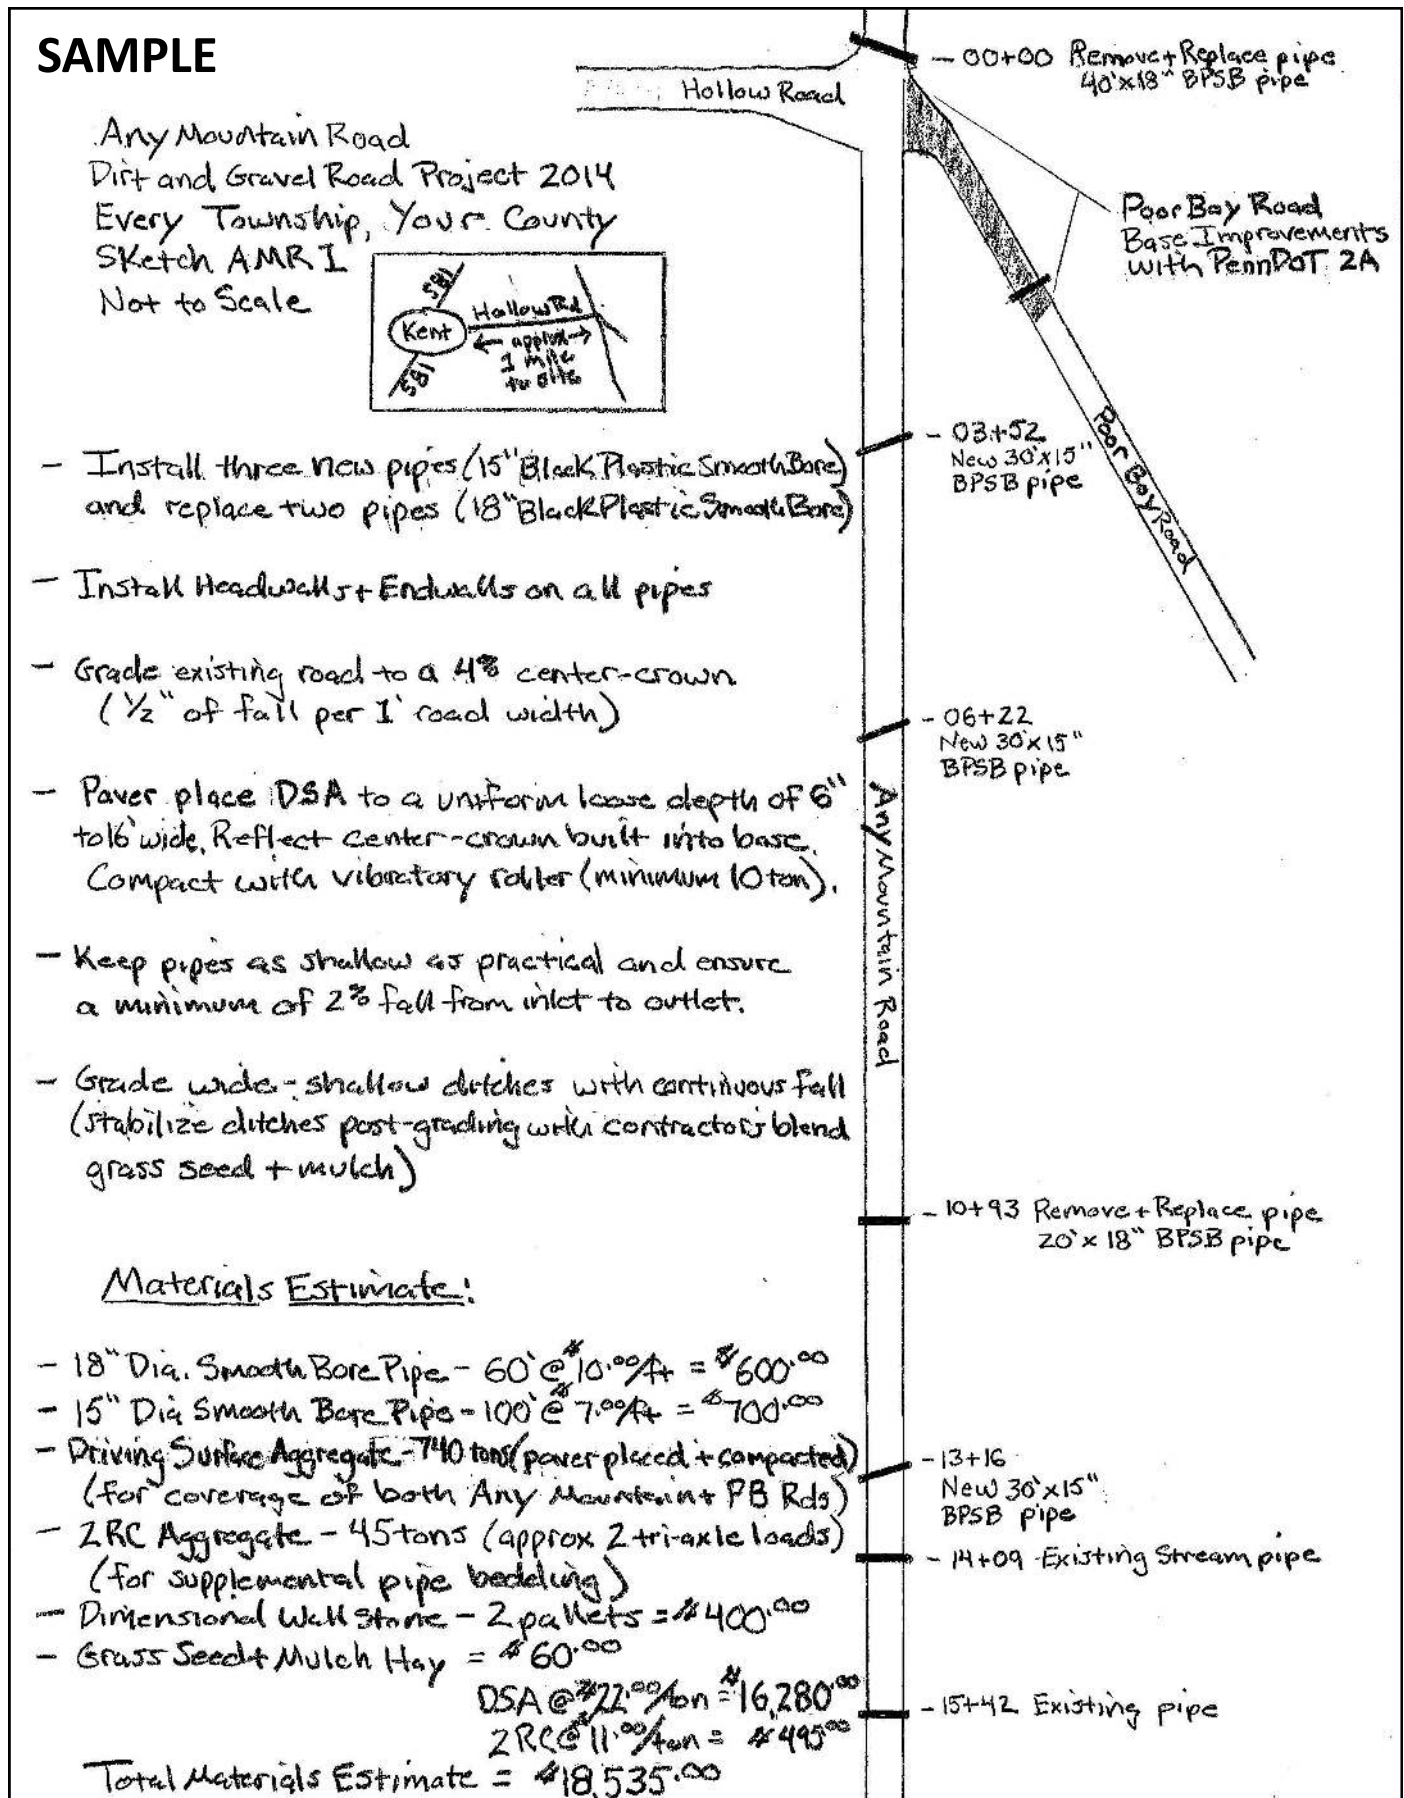 SAMPLE
Any Mountain Road
Dirt and Gravel Road Project 2014
Every Township, Your County
Sketch AMR 1
Not to Scale
Kent
Hollow Rd
approx
1 mile
to site
- Install three new pipes (15" Black Plastic Smooth Bore)
and replace two pipes (18" Black Plastic Smooth Bore)
- Install Headwalls + Endwalls on all pipes
- Grade existing road to a 4% center-crown
(1/2" of fall per 1' road width)
- Paver place DSA to a uniform loose depth of 6"
to 16' wide. Reflect center-crown built into base.
Compact with vibratory roller (minimum 10 ton).
- Keep pipes as shallow as practical and ensure
a minimum of 2% fall from inlet to outlet.
- Grade wide-shallow ditches with continuous fall
(stabilize ditches post-grading with contractor's blend
grass seed + mulch)
Materials Estimate:
- 18" Dia. Smooth Bore Pipe - 60' @ $10.00/ft = $600.00
- 15" Dia Smooth Bore Pipe - 100' @ $7.00/ft = $700.00
- Driving Surface Aggregate - 740 tons (paver placed + compacted)
(for coverage of both Any Mountain + PB Rds)
- 2RC Aggregate - 45 tons (approx 2 tri-axle loads)
(for supplemental pipe bedding)
- Dimensional Wall Stone - 2 pallets = $400.00
- Grass Seed + Mulch Hay = $60.00
DSA @ $22.00/ton = $16,280.00
2RC @ $11.00/ton = $495.00
Total Materials Estimate = $18,535.00
Hollow Road
- 00+00 Remove + Replace pipe
40'x18" BPSB pipe
Poor Boy Road
Base Improvements
with PennDOT 2A
Poor Boy Road
- 03+52
New 30'x15"
BPSB pipe
- 06+22
New 30'x15"
BPSB pipe
Any Mountain Road
- 10+93 Remove + Replace pipe
20'x18" BPSB pipe
- 13+16
New 30'x15"
BPSB pipe
- 14+09 - Existing Stream pipe
- 15+42 Existing pipe